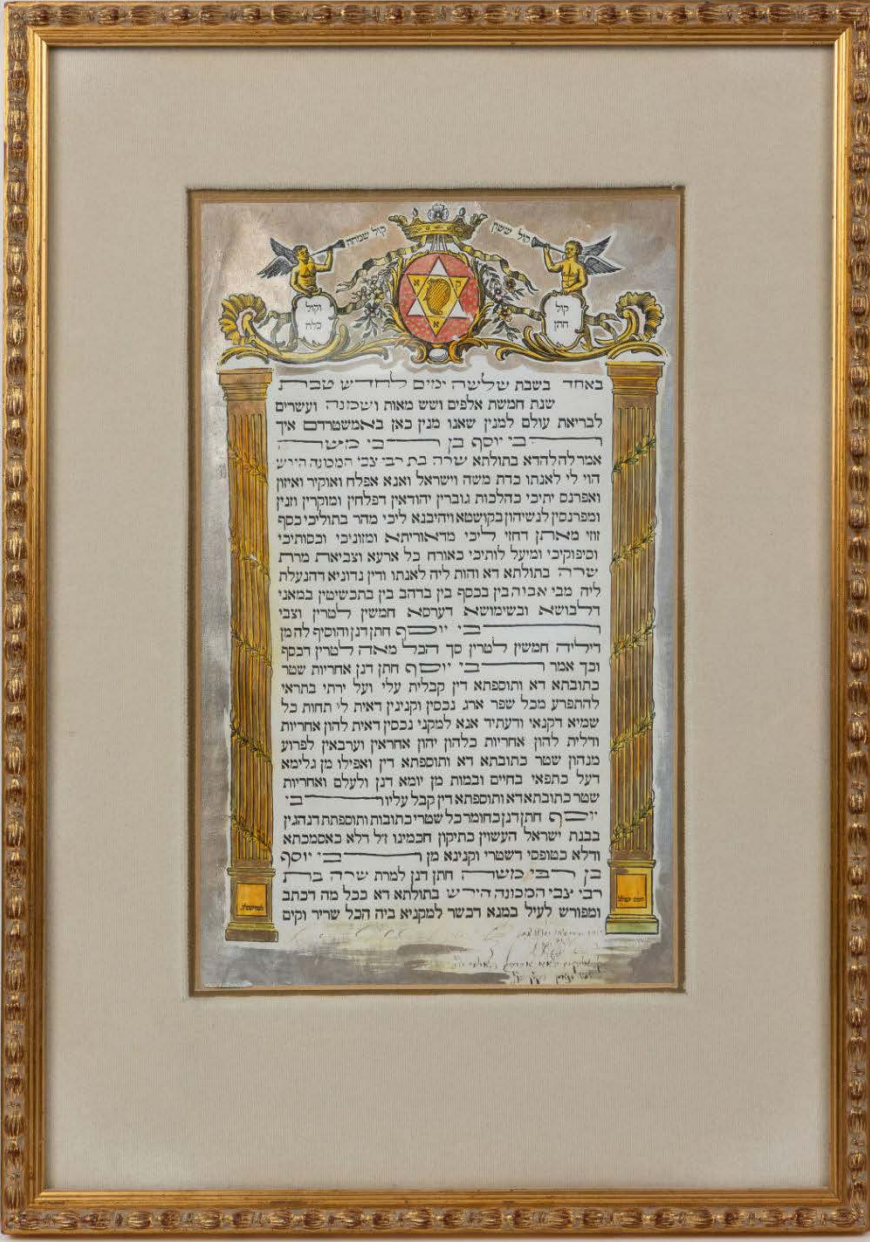 קול ששון
קול שמחה
קול
חתן
וקול
כלה
באחד בשבת שלשה ימים לחדש טבת
שנת חמשת אלפים ושש מאות ושמנה ועשרים
לבריאת עולם למנין שאנו מנין כאן באמשטרדם איך
רבי יוסף בן רבי משה
אמר לה להדא בתולתא שרה בת רבי צבי המכונה הירש
הוי לי לאנתו כדת משה וישראל ואנא אפלח ואוקיר ואיזון
ואפרנס יתיכי כהלכות גוברין יהודאין דפלחין ומוקרין וזנין
ומפרנסין לנשיהון בקושטא ויהיבנא ליכי מהר בתוליכי כסף
זוזי מאתן דחזי ליכי מדאוריתא ומזוניכי וכסותיכי
וסיפוקיכי ומיעל לותיכי כאורח כל ארעא וצביאת מרת
שרה בתולתא דא והות ליה לאנתו ודין נדוניא דהנעלת
ליה מבי אבוה בין בכסף בין בדהב בין בתכשיטין במאני
דלבושא ובשימושא דערסא חמשין לטרין וצבי
רבי יוסף חתן דנן והוסיף לה מן
דיליה חמשין לטרין סך הכל מאה לטרין דכסף
וכך אמר רבי יוסף חתן דנן אחריות שטר
כתובתא דא ותוספתא דין קבלית עלי ועל ירתי בתראי
להתפרע מכל שפר ארג נכסין וקנינין דאית לי תחות כל
שמיא דקנאי ודעתיד אנא למקני נכסין דאית להון אחריות
ודלית להון אחריות כלהון יהון אחראין וערבאין לפרוע
מנהון שטר כתובתא דא ותוספתא דין ואפילו מן גלימא
דעל כתפאי בחיים ובמות מן יומא דנן ולעלם ואחריות
שטר כתובתא דא ותוספתא דין קבל עליו רבי
יוסף חתן דנן כחומר כל שטרי כתובות ותוספתת דנהגין
בבנת ישראל העשוין כתיקון חכמינו ז״ל דלא כאסמכתא
ודלא כטופסי דשטרי וקנינא מן רבי יוסף
בן רבי משה חתן דנן למרת שרה בת
רבי צבי המכונה הירש בתולתא דא בכל מה דכתב
ומפורש לעיל במנא דכשר למקניא ביה הכל שריר וקים